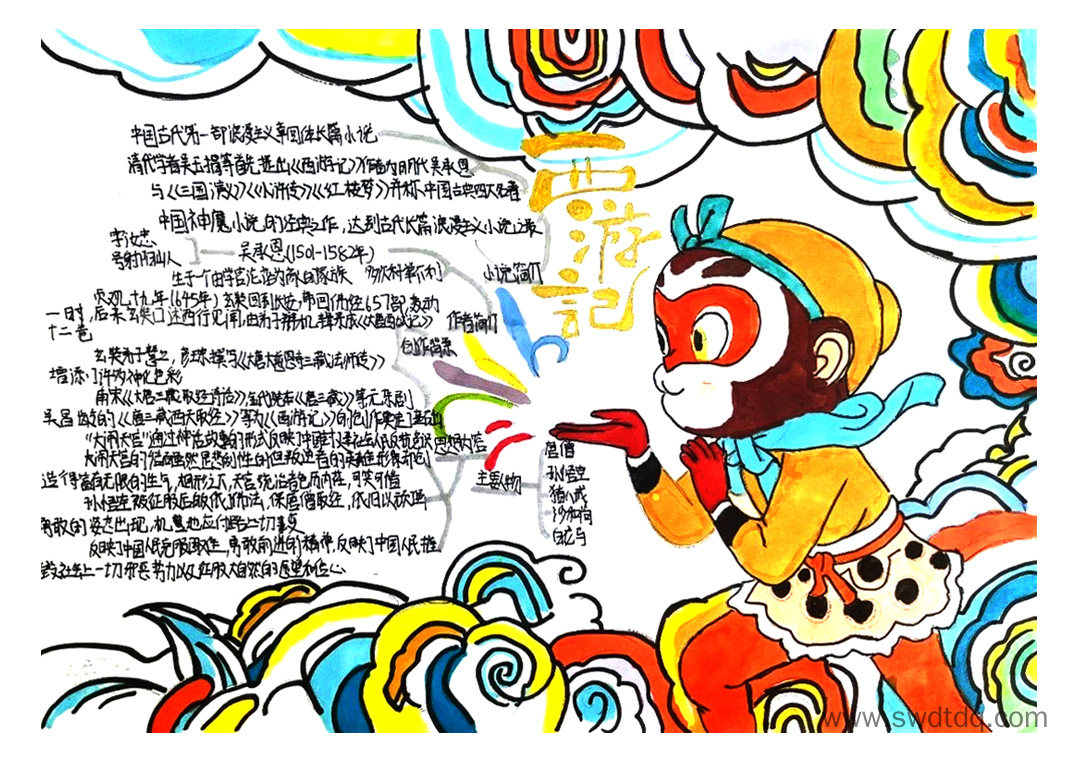 西游記
中国古代第一部浪漫主义章回体长篇小说
清代学者吴玉搢等首先提出《西游记》作者为明代吴承恩
与《三国演义》《水浒传》《红楼梦》并称中国古典四大名著
中国神魔小说的经典之作，达到古代长篇浪漫主义小说之最
小说简介
李汝忠
号射阳山人
吴承恩(1501-1582年)
生于一个由学官沦落为商人的家族
多次科举不利
作者简介
贞观十九年(645年)玄奘回到长安，带回佛经657部，轰动
一时，后来玄奘口述西行见闻，由弟子辩机辑录成《大唐西域记》
十二卷
创作背景
玄奘弟子慧立、彦琮撰写《大唐大慈恩寺三藏法师传》
增添了许多神化色彩
南宋《大唐三藏取经诗话》金代院本《唐三藏》等元杂剧
吴昌龄的《唐三藏西天取经》等为《西游记》的创作奠定了基础
"大闹天宫"通过神话故事的形式反映中国封建社会人民
思想内容
主要人物
唐僧
孙悟空
猪八戒
沙和尚
白龙马
造得富有无限的生气，相形之下，天宫统治者色厉内荏，可笑可憎
孙悟空被征服后皈依了佛法，保唐僧取经，依旧以
勇敢的姿态出现，机智地应付路上一切事变
反映了中国人民克服困难，勇敢前进的精神，反映了中国人民摧
毁社会上一切邪恶势力以及征服大自然的愿望和信心
www.swdtdq.com